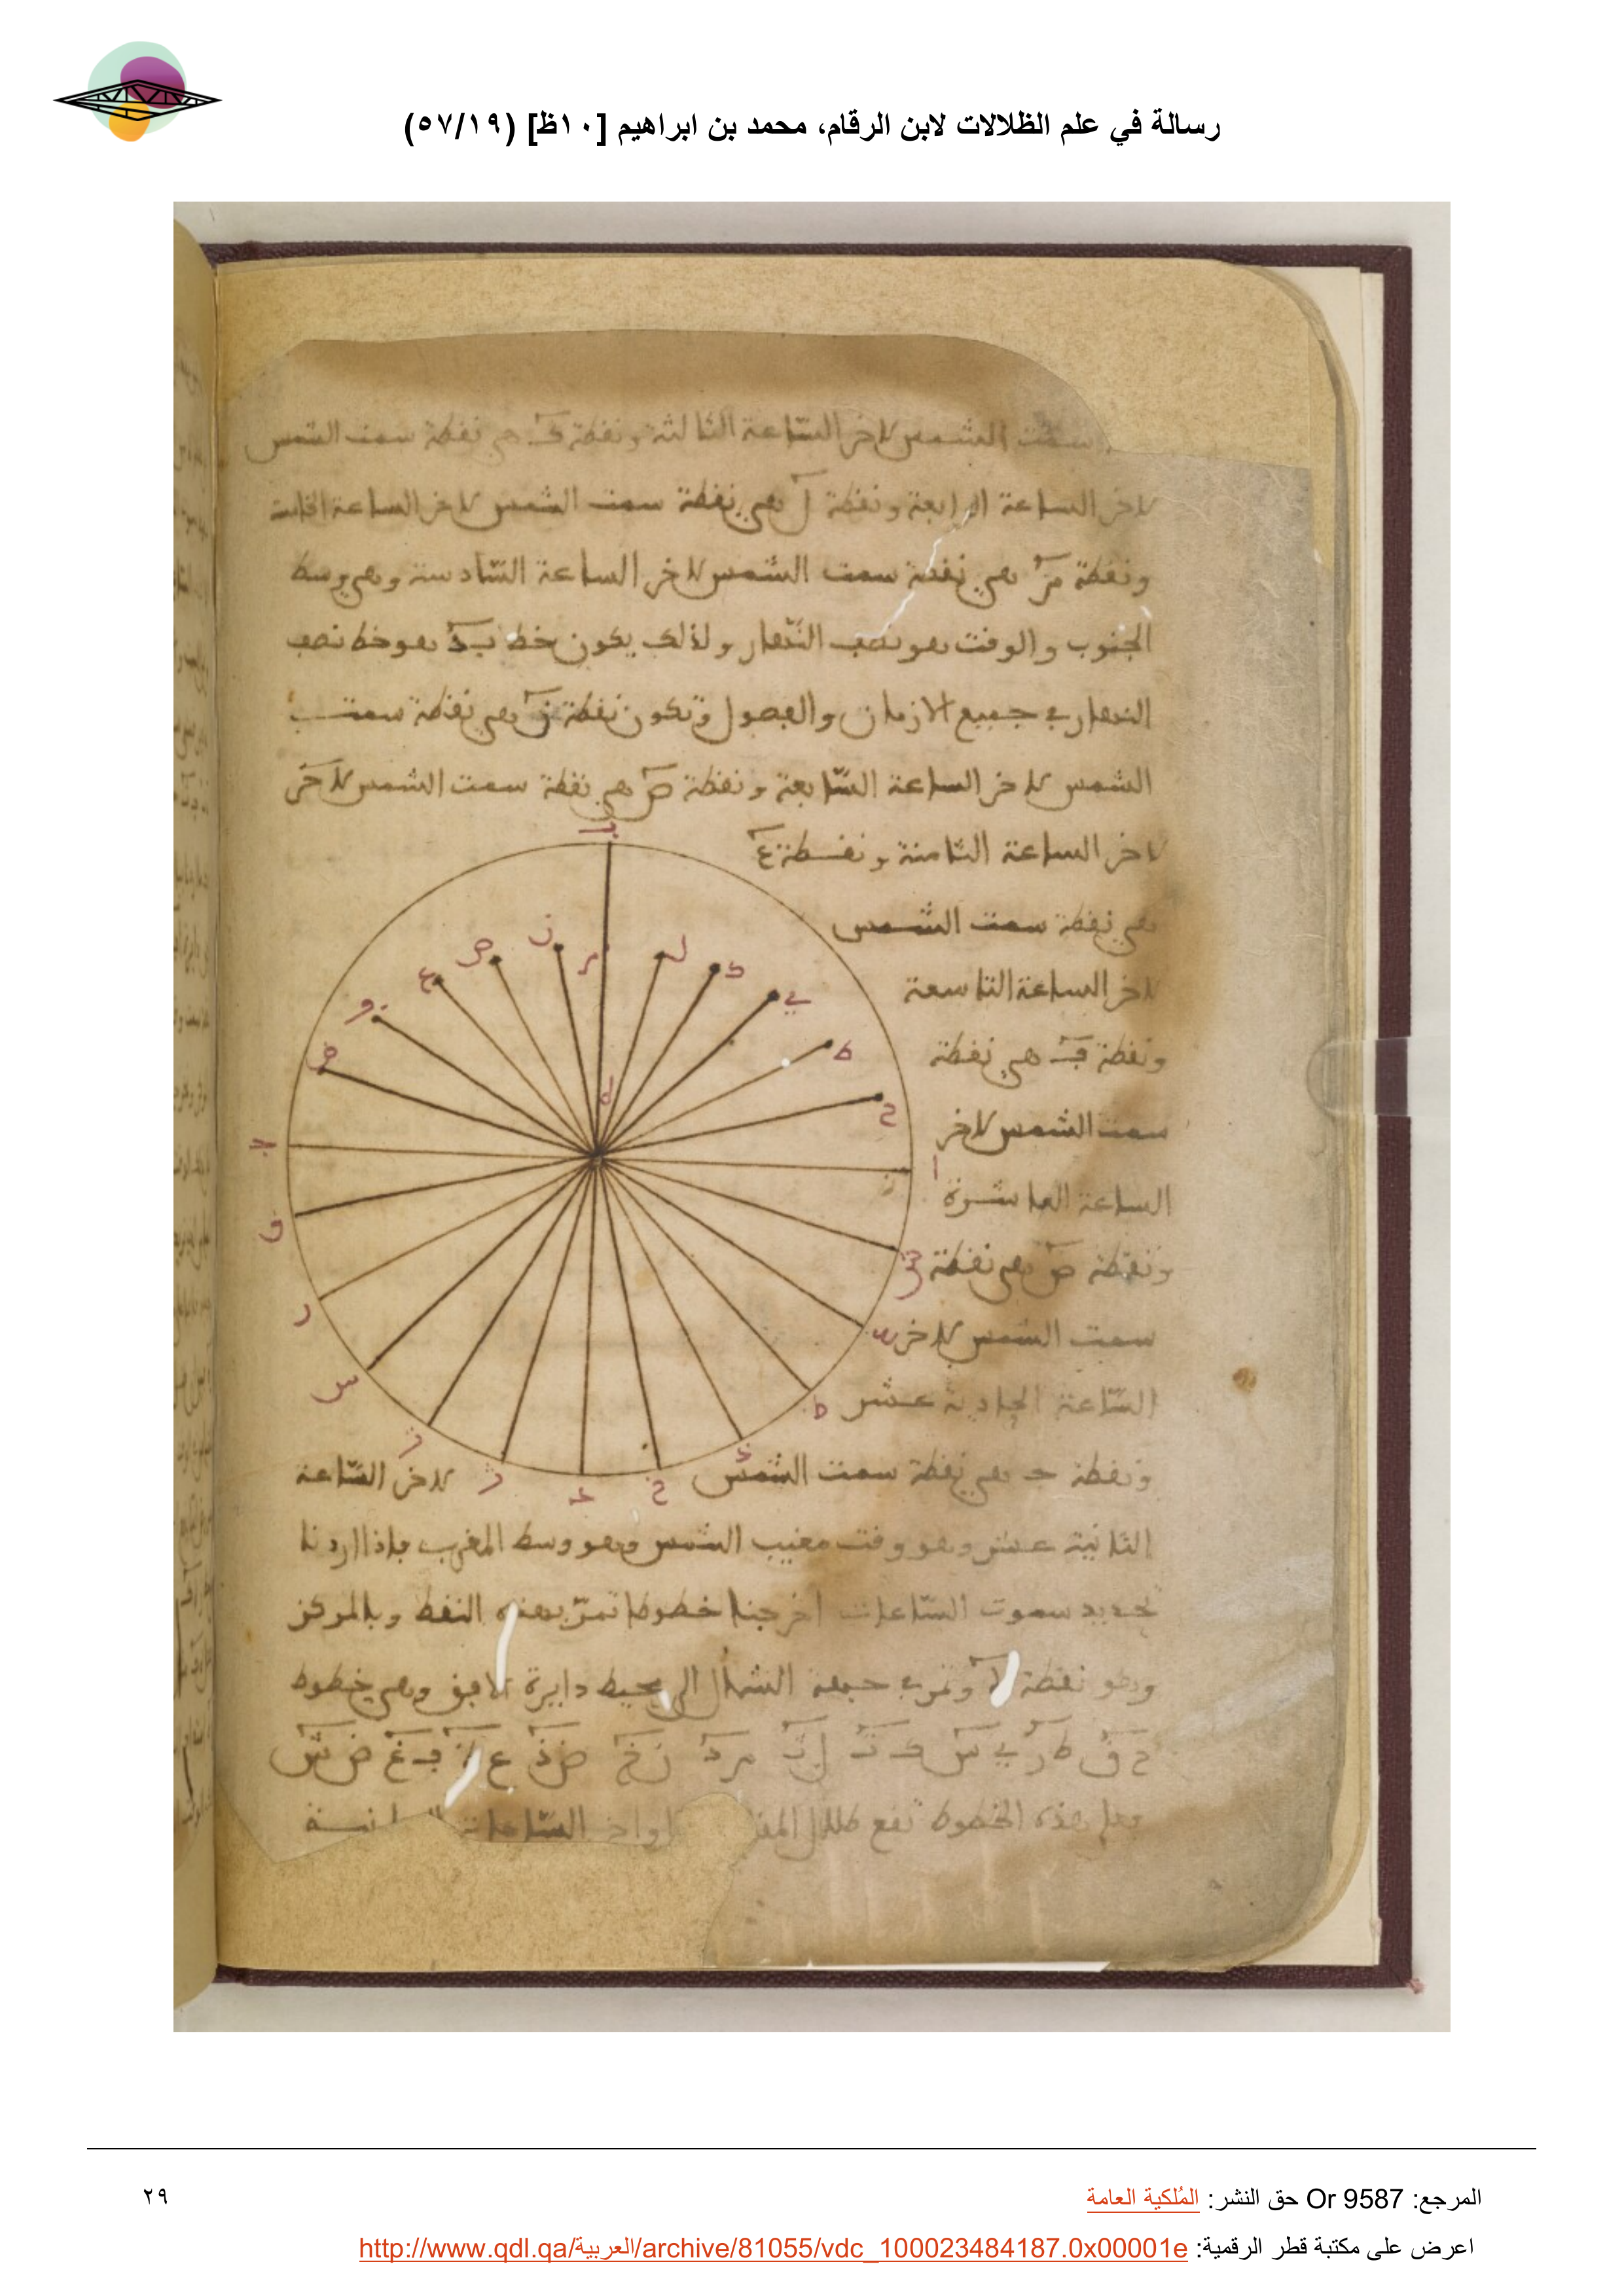 رسالة في علم الظلالات لابن الرقام، محمد بن ابراهيم [١٠ظ] (٥٧/١٩)
سمت الشمس لاخر الساعة الثالثة ونقطة كـ هي نقطة سمت الشمس
لاخر الساعة الرابعة ونقطة ل هي نقطة سمت الشمس لاخر الساعة الخامسة
ونقطة م هي نقطة سمت الشمس لاخر الساعة السّادسة وهي وسط
الجنوب والوقت هو نصف النّهار ولذلك يكون خط ب د هو خط نصف
النهار في جميع الازمان والفصول وتكون نقطة ن هي نقطة سمت
الشمس لاخر الساعة السّابعة ونقطة ص هي نقطة سمت الشمس لاخر
لاخر الساعة الثامنة ونقطة ع
هي نقطة سمت الشمس
لاخر الساعة التاسعة
ونقطة ف هي نقطة
سمت الشمس لاخر
الساعة العاشرة
ونقطة ض هي نقطة
سمت الشمس لاخر
السّاعة الحادية عشر
ونقطة حـ هي نقطة سمت الشمس لاخر السّاعة
الثانية عشر وهو وقت مغيب الشمس وهو وسط المغرب فاذا اردنا
تحديد سموت السّاعات اخرجنا خطوطا تمرّ بهذه النقط وبالمركز
وهو نقطة ه وتمر في جهة الشمال الى محيط دايرة الافق وهي خطوط
ح ق ط ر ي س ك ت ل ث م د ن خ ص ذ ع ف غ ض ش
وعلى هذه الخطوط تقع ظلال السّاعات
المرجع: Or 9587 حق النشر: المُلكية العامة
٢٩
اعرض على مكتبة قطر الرقمية: http://www.qdl.qa/العربية/archive/81055/vdc_100023484187.0x00001e